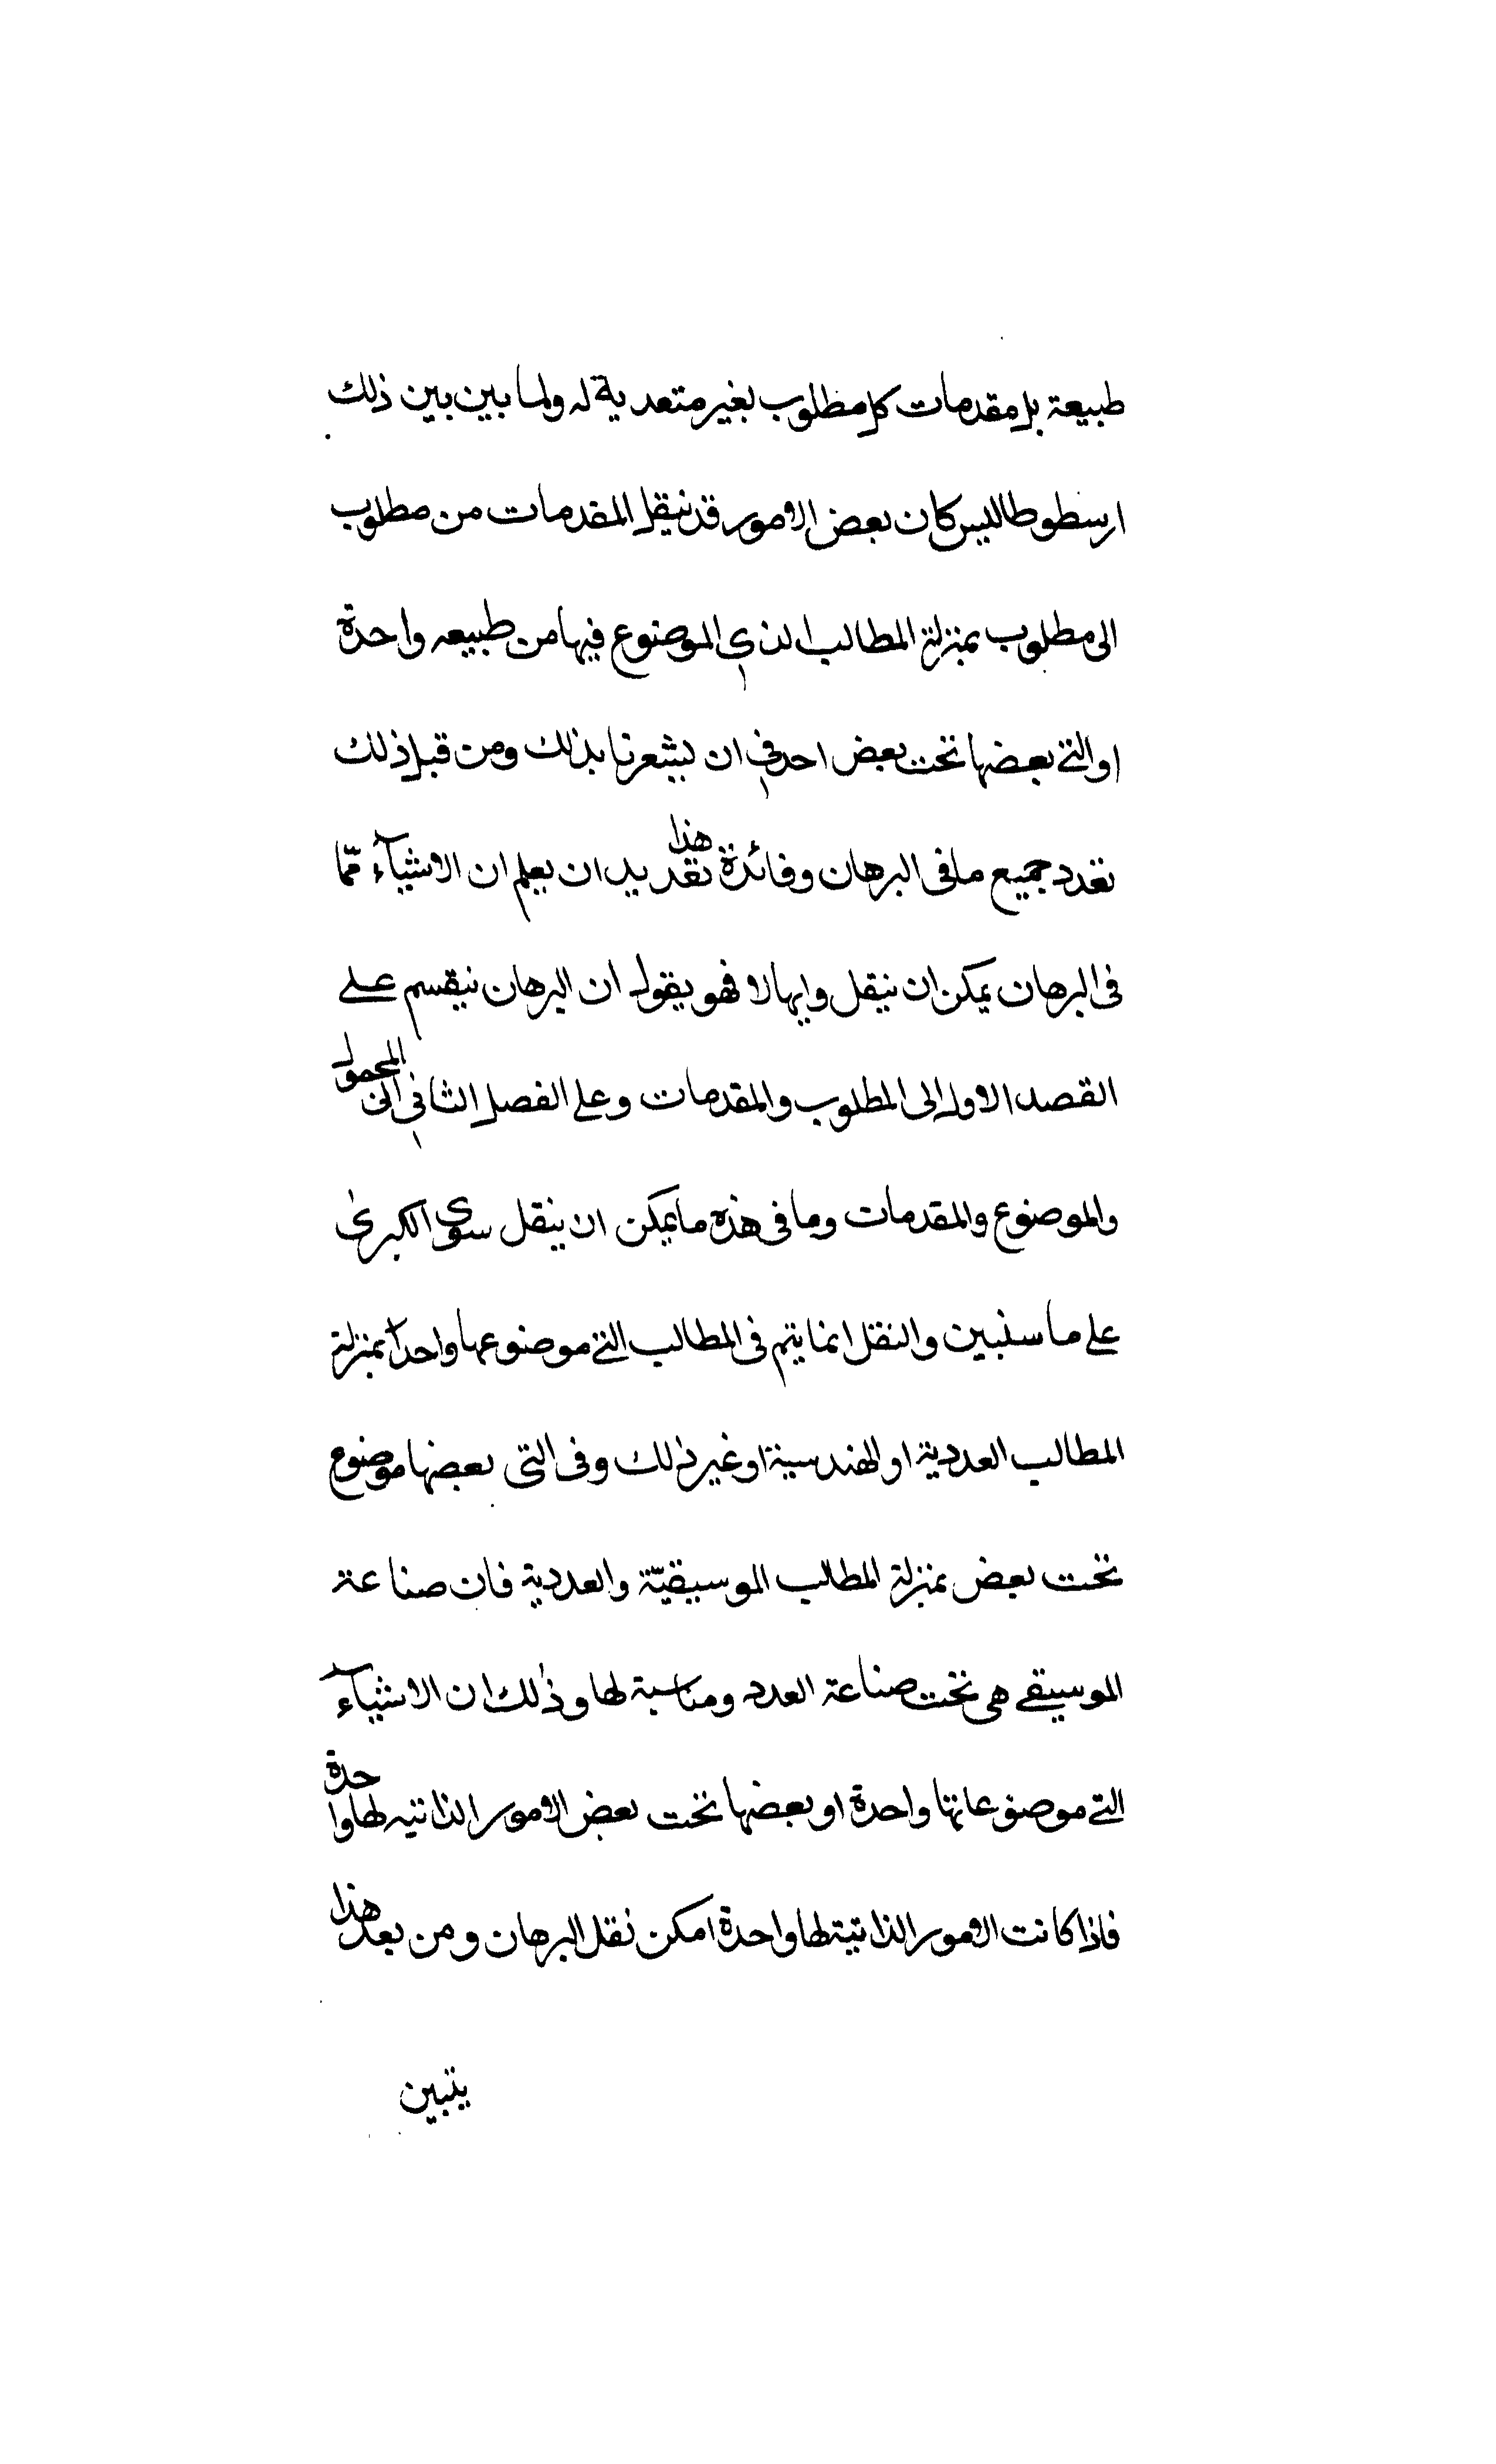 طبيعة بل مقدمات كل مطلوب بغير متعدية له ولما بين بين ذلك
ارسطوطاليس كان بعض الامور قد ينقل المقدمات من مطلوب
الى مطلوب بمنزلة المطالب الذى الموضوع فيها من طبيعه واحدة
او التى بعضها تحت بعض احد فى ان يشعرنا بذلك ومن قبل ذلك
تعدد جميع ما فى البرهان وفائدة هذا تعديد ان يعلم ان الاشيآء ممّا
فى البرهان يمكن ان ينقل وايها لا فهو يقول ان البرهان ينقسم على
القصد الاول الى المطلوب والمقدمات وعلى الفصل الثانى الى المحمول
والموضوع والمقدمات وما فى هذه ما يمكن ان ينقل سوى الكبرى
على ما سنبين والنقل انما يتم فى المطالب التى موضوعها واحدا بمنزلة
المطالب العددية او الهندسية او غير ذلك وفى التى بعضها موضوع
تحت بعض بمنزلة المطالب الموسيقيّة والعددية فان صناعة
الموسيقى هى تحت صناعة العدد ومناسبة لها وذلك ان الاشيآء
التى موضوعاتها واحدة او بعضها تحت بعض الامور الذاتيه لها واحدة
فاذا كانت الامور الذاتية لها واحدة امكن نقل البرهان ومن بعد هذا
يتبين